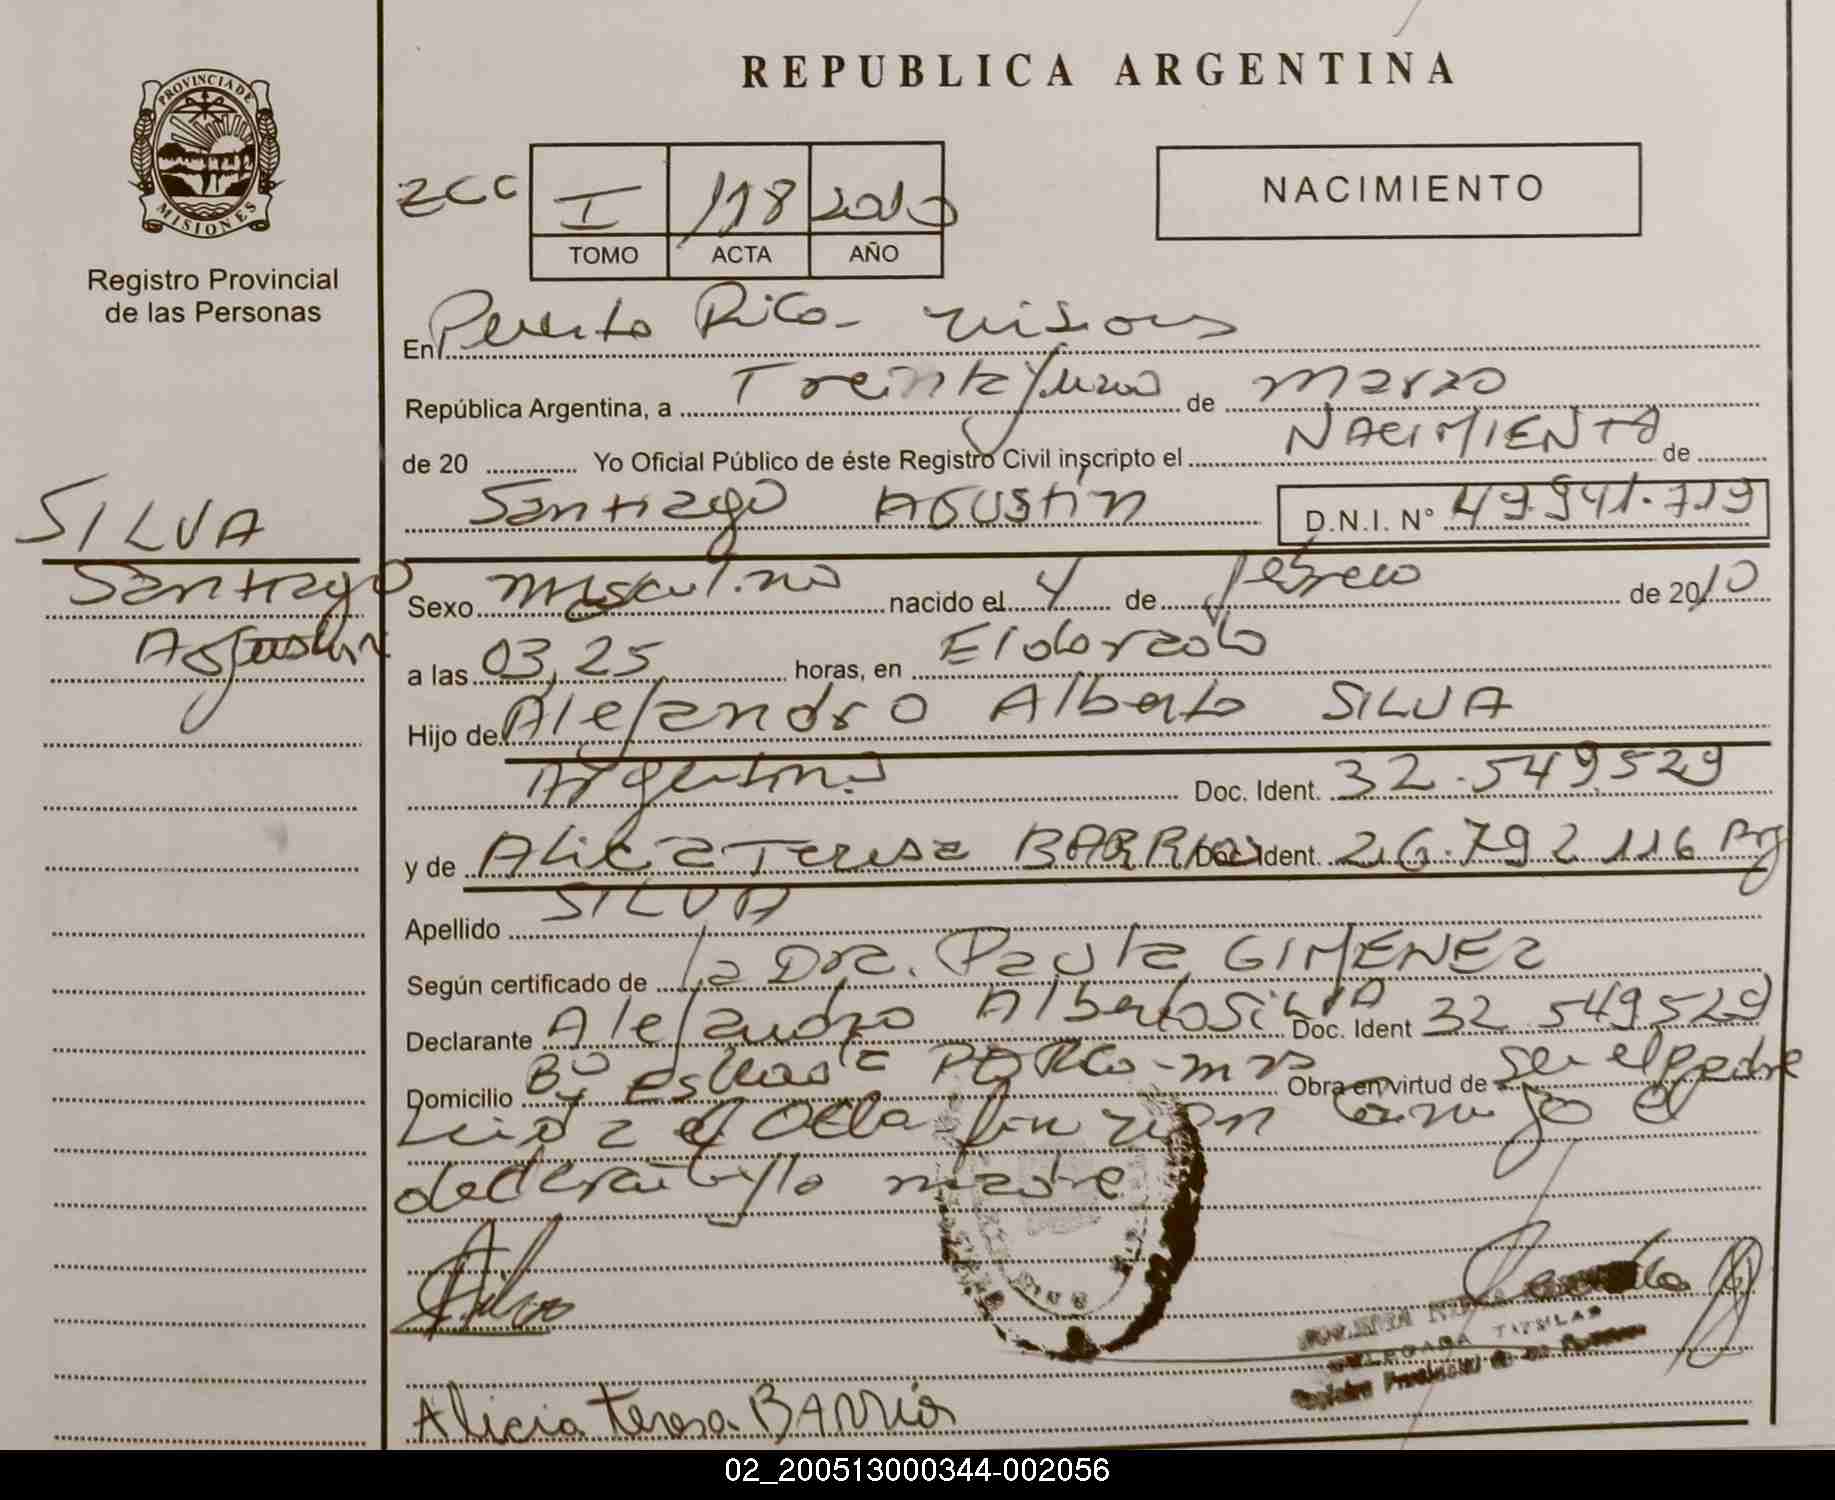 REPUBLICA ARGENTINA
PROVINCIA DE
MISIONES
Registro Provincial
de las Personas
ZCC
I 118 2010
TOMO ACTA AÑO
NACIMIENTO
En Puerto Rico - misiones
República Argentina, a Treinta y uno de marzo
de 20 Yo Oficial Público de éste Registro Civil inscripto el NACIMIENTO de
Santiago AGUSTIN D.N.I. N° 49.941.719
SILVA
Santiago
Agustin
Sexo masculino nacido el 4 de febrero de 2010
a las 03,25 horas, en Eldorado
Hijo de Alejandro Alberto SILVA
Argentino Doc. Ident. 32.549.529
y de Alicia Teresa BARRIOS Doc. Ident. 26.792.116 Arg
Apellido SILVA
Según certificado de la Dra. Paula GIMENEZ
Declarante Alejandro Alberto SILVA Doc. Ident 32.549529
Domicilio Bº Obra en virtud de ser el padre
Leida el Acta firman conmigo el
declarante y la madre
Silva
DELEGADA TITULAR
Registro Provincial de las Personas
Alicia teresa BARRios
02_200513000344-002056